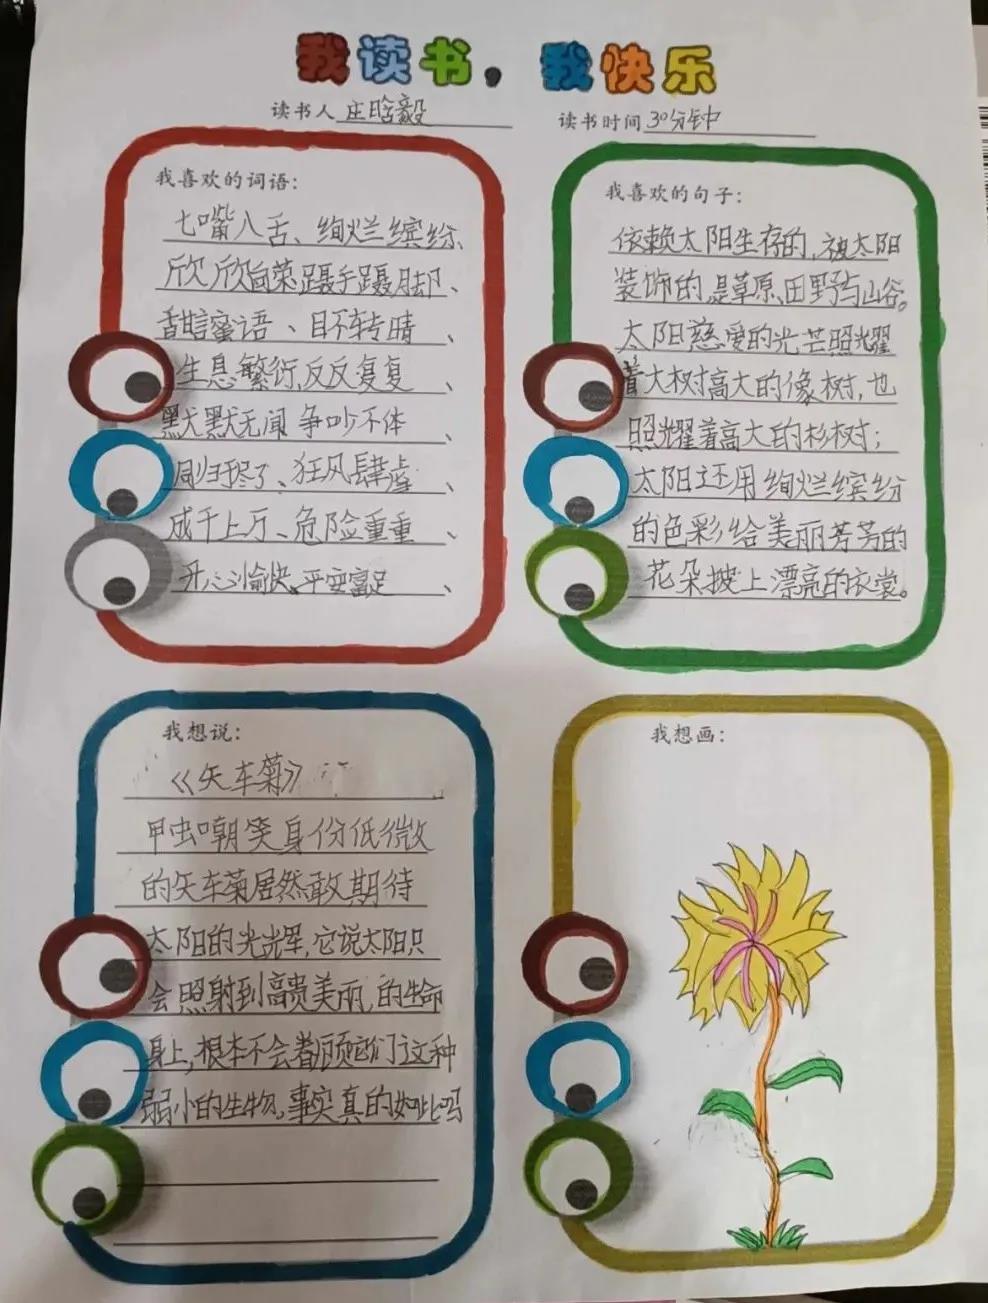 我读书，我快乐
读书人 庄晗毅 读书时间 30分钟
我喜欢的词语：
七嘴八舌、绚烂缤纷、
欣欣向荣蹑手蹑脚、
甜言蜜语、目不转睛、
生息繁衍,反反复复、
默默无闻 争吵不体、
、狂风肆虐
成千上万、危险重重、
开心愉快、平安富足、
我喜欢的句子：
依赖太阳生存的,被太阳
装饰的,是草原、田野与山谷。
太阳慈爱的光芒照耀
着大树高大的像树,也
照耀着高大的杉树；
太阳还用绚烂缤纷
的色彩给美丽芳芳的
花朵披上漂亮的衣裳。
我想说：
《矢车菊》
甲虫嘲笑身份低微
的矢车菊居然敢期待
太阳的光辉,它说太阳只
会照射到高贵美丽,的生命
身上,根本不会着顾它们这种
弱小的生物,事实真的如此吗
我想画：